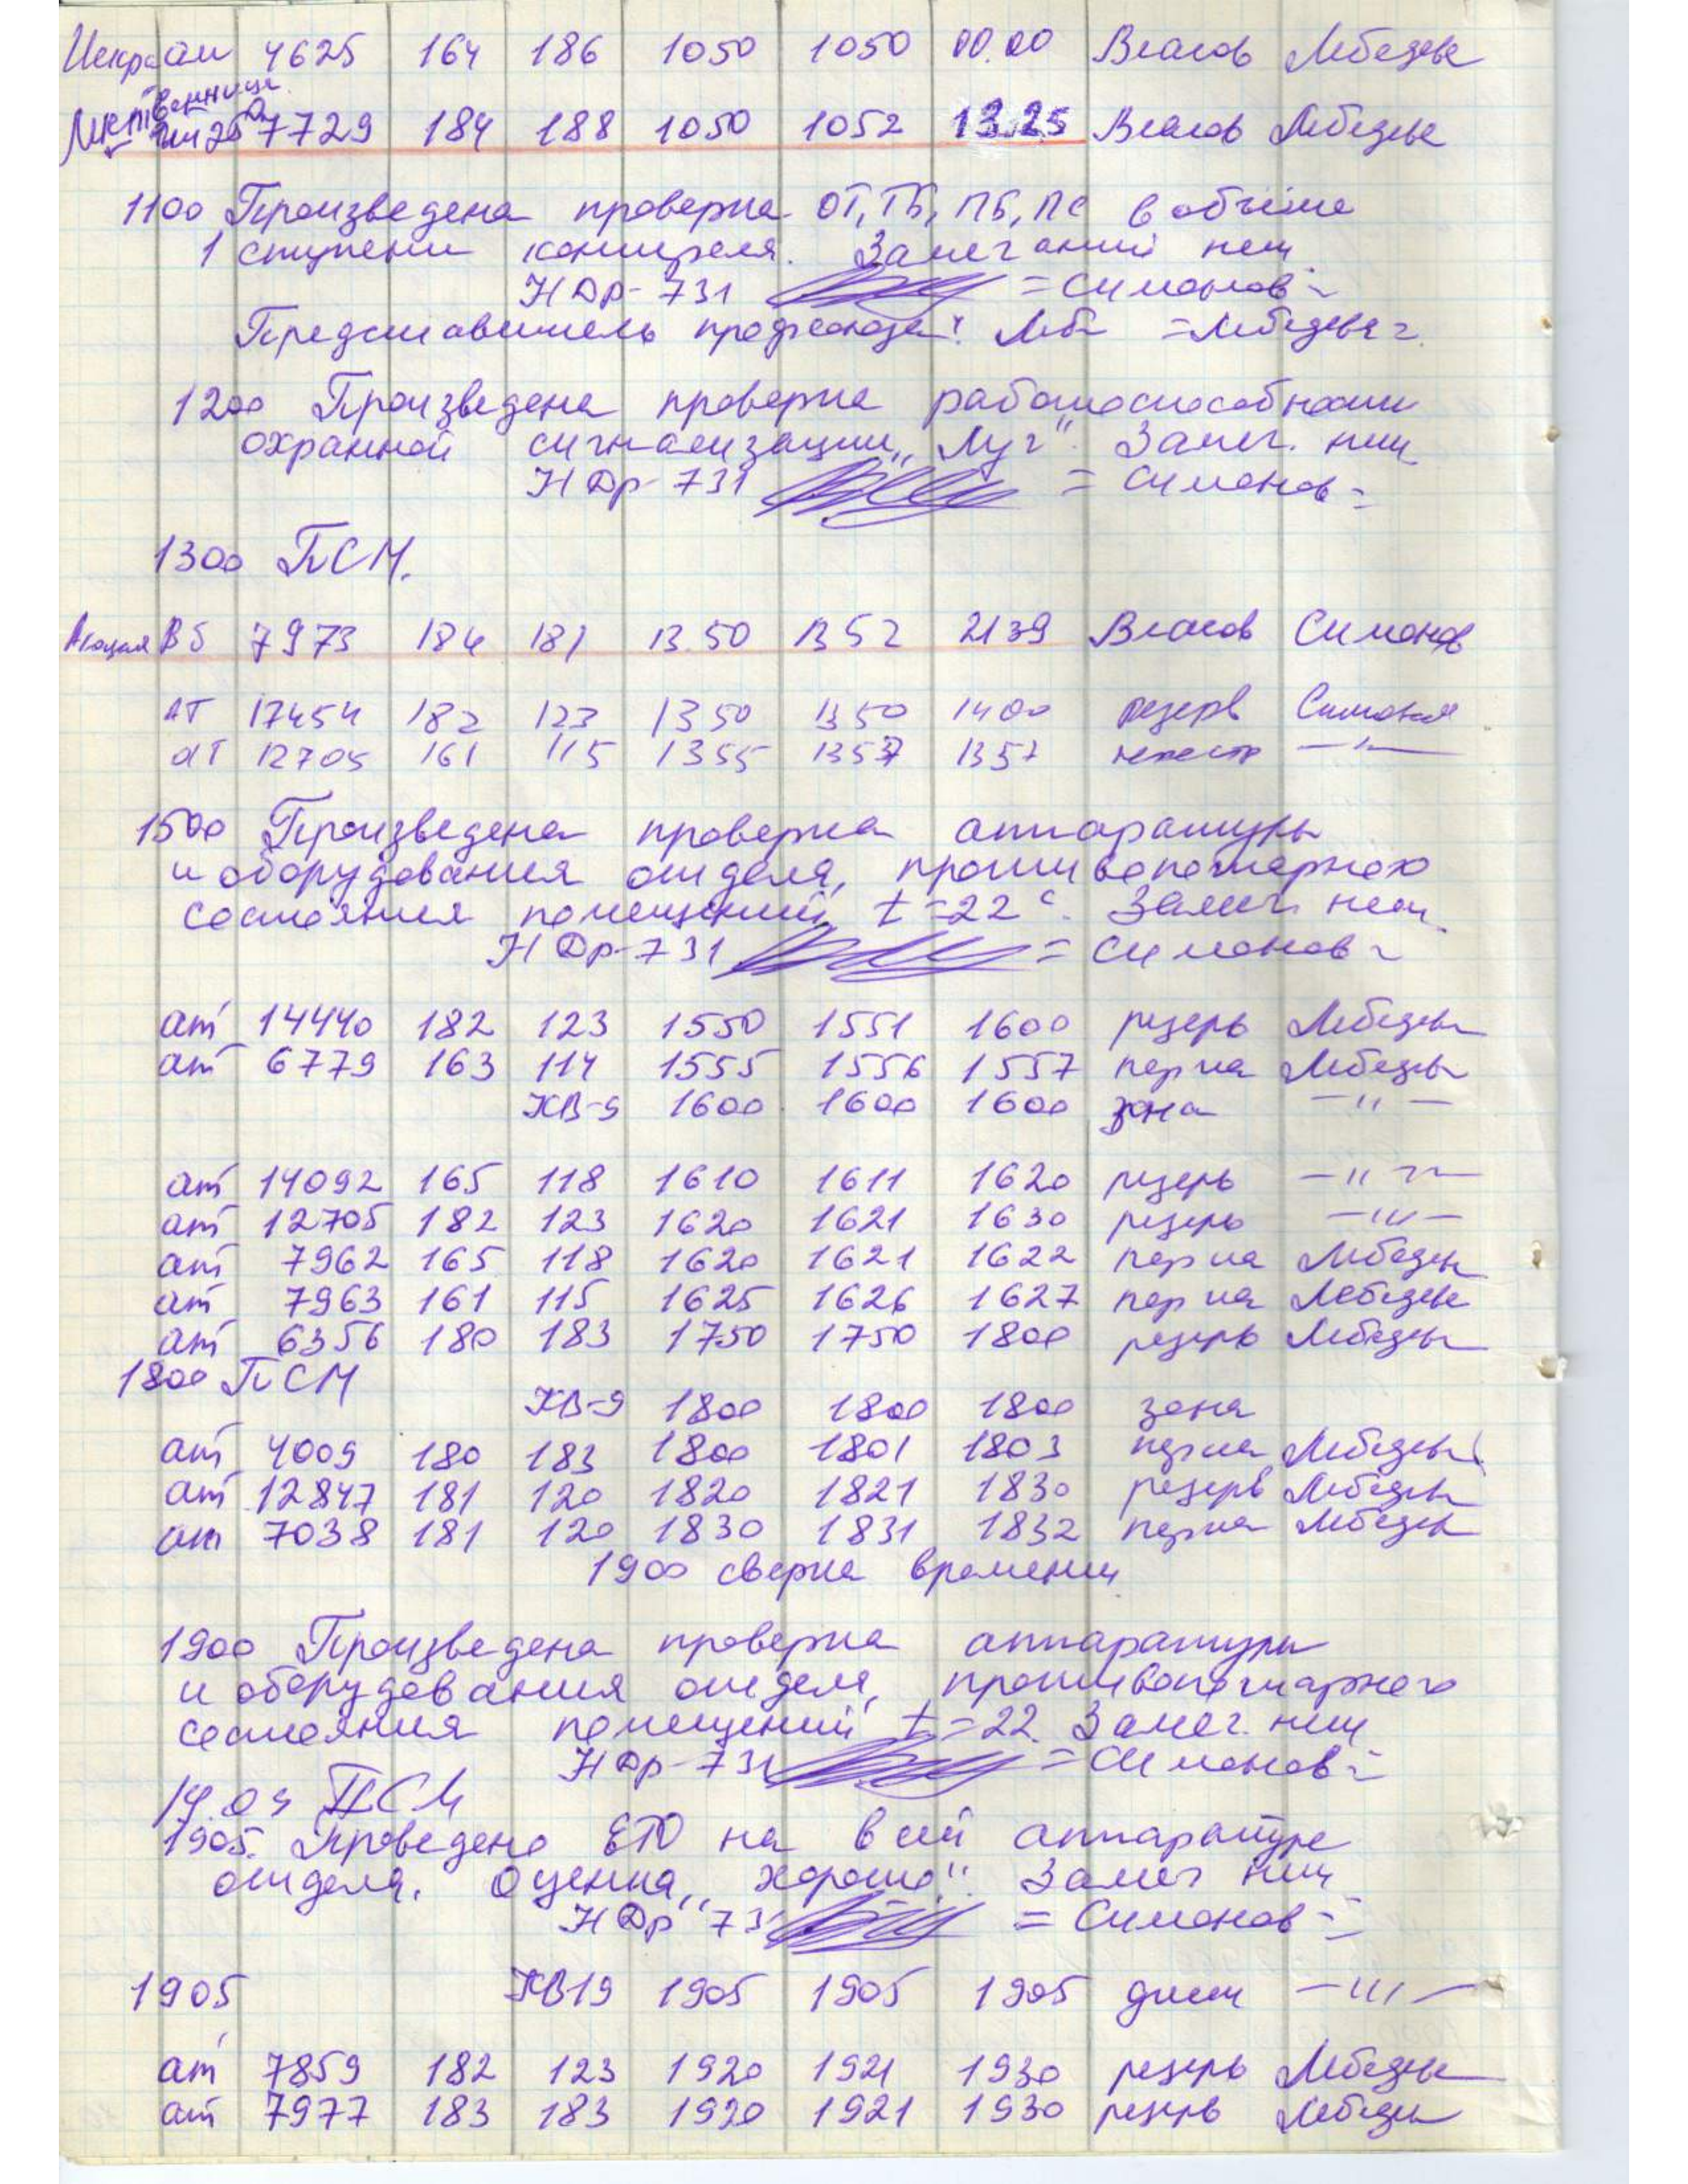 Искра ат 4625 164 186 1050 1050 00.00 Власов Лебедев
Лиственница
7729 184 188 1050 1052 13.25 Власов Лебедев
1100 Произведена проверка ОТ, ТБ, ПБ, ПС в объёме
1 ступени контроля. Замечаний нет
НДр-731 =Симонов=
Представитель профсоюза: Леб =Лебедева=
1200 Произведена проверка работоспособности
охранной сигнализации „Луч". Замеч. нет
НДр-731 = Симонов=
1300 ПСМ.
Акация В5 7973 184 181 13.50 1352 2139 Власов Симонов
АТ 17454 182 123 1350 1350 1400 резерв Симонов
АТ 12705 161 115 1355 1357 1357 —"—
1500 Произведена проверка аппаратуры
и оборудования отдела, противопожарного
состояния помещений, t=22°. Замеч. нет.
НДр-731 = Симонов=
ат 14440 182 123 1550 1551 1600 резерв Лебедев
ат 6779 163 114 1555 1556 1557 Лебедев
КВ-9 1600 1600 1600 зона —"—
ат 14092 165 118 1610 1611 1620 резерв —"—
ат 12705 182 123 1620 1621 1630 резерв —"—
ат 7962 165 118 1620 1621 1622 Лебедев
ат 7963 161 115 1625 1626 1627 Лебедев
ат 6356 180 183 1750 1750 1800 резерв Лебедев
1800 ПСМ
КВ-9 1800 1800 1800 зона
ат 4009 180 183 1800 1801 1803 Лебедев
ат 12847 181 120 1820 1821 1830 резерв Лебедев
ат 7038 181 120 1830 1831 1832 Лебедев
1900 сверка времени
1900 Произведена проверка аппаратуры
и оборудования отдела, противопожарного
состояния помещений t=22. Замеч. нет
НДр-731 =Симонов=
19.04 ПСМ
1905. Проведено ЕТО на всей аппаратуре
отдела. Оценка „хорошо". Замеч нет
НДр-731 = Симонов=
1905 КВ19 1905 1905 1905 —"—
ат 7859 182 123 1920 1921 1930 резерв Лебедев
ат 7977 183 183 1920 1921 1930 резерв Лебедев